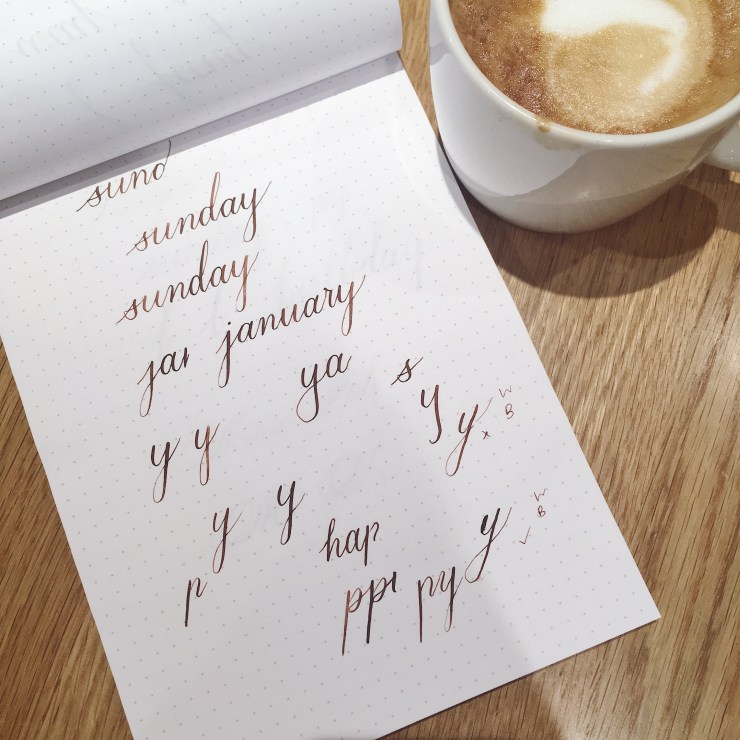 sund
sunday
sunday
jai january
ya s
y y y y W
x B
y y W
p hap y B
ppi py ✓